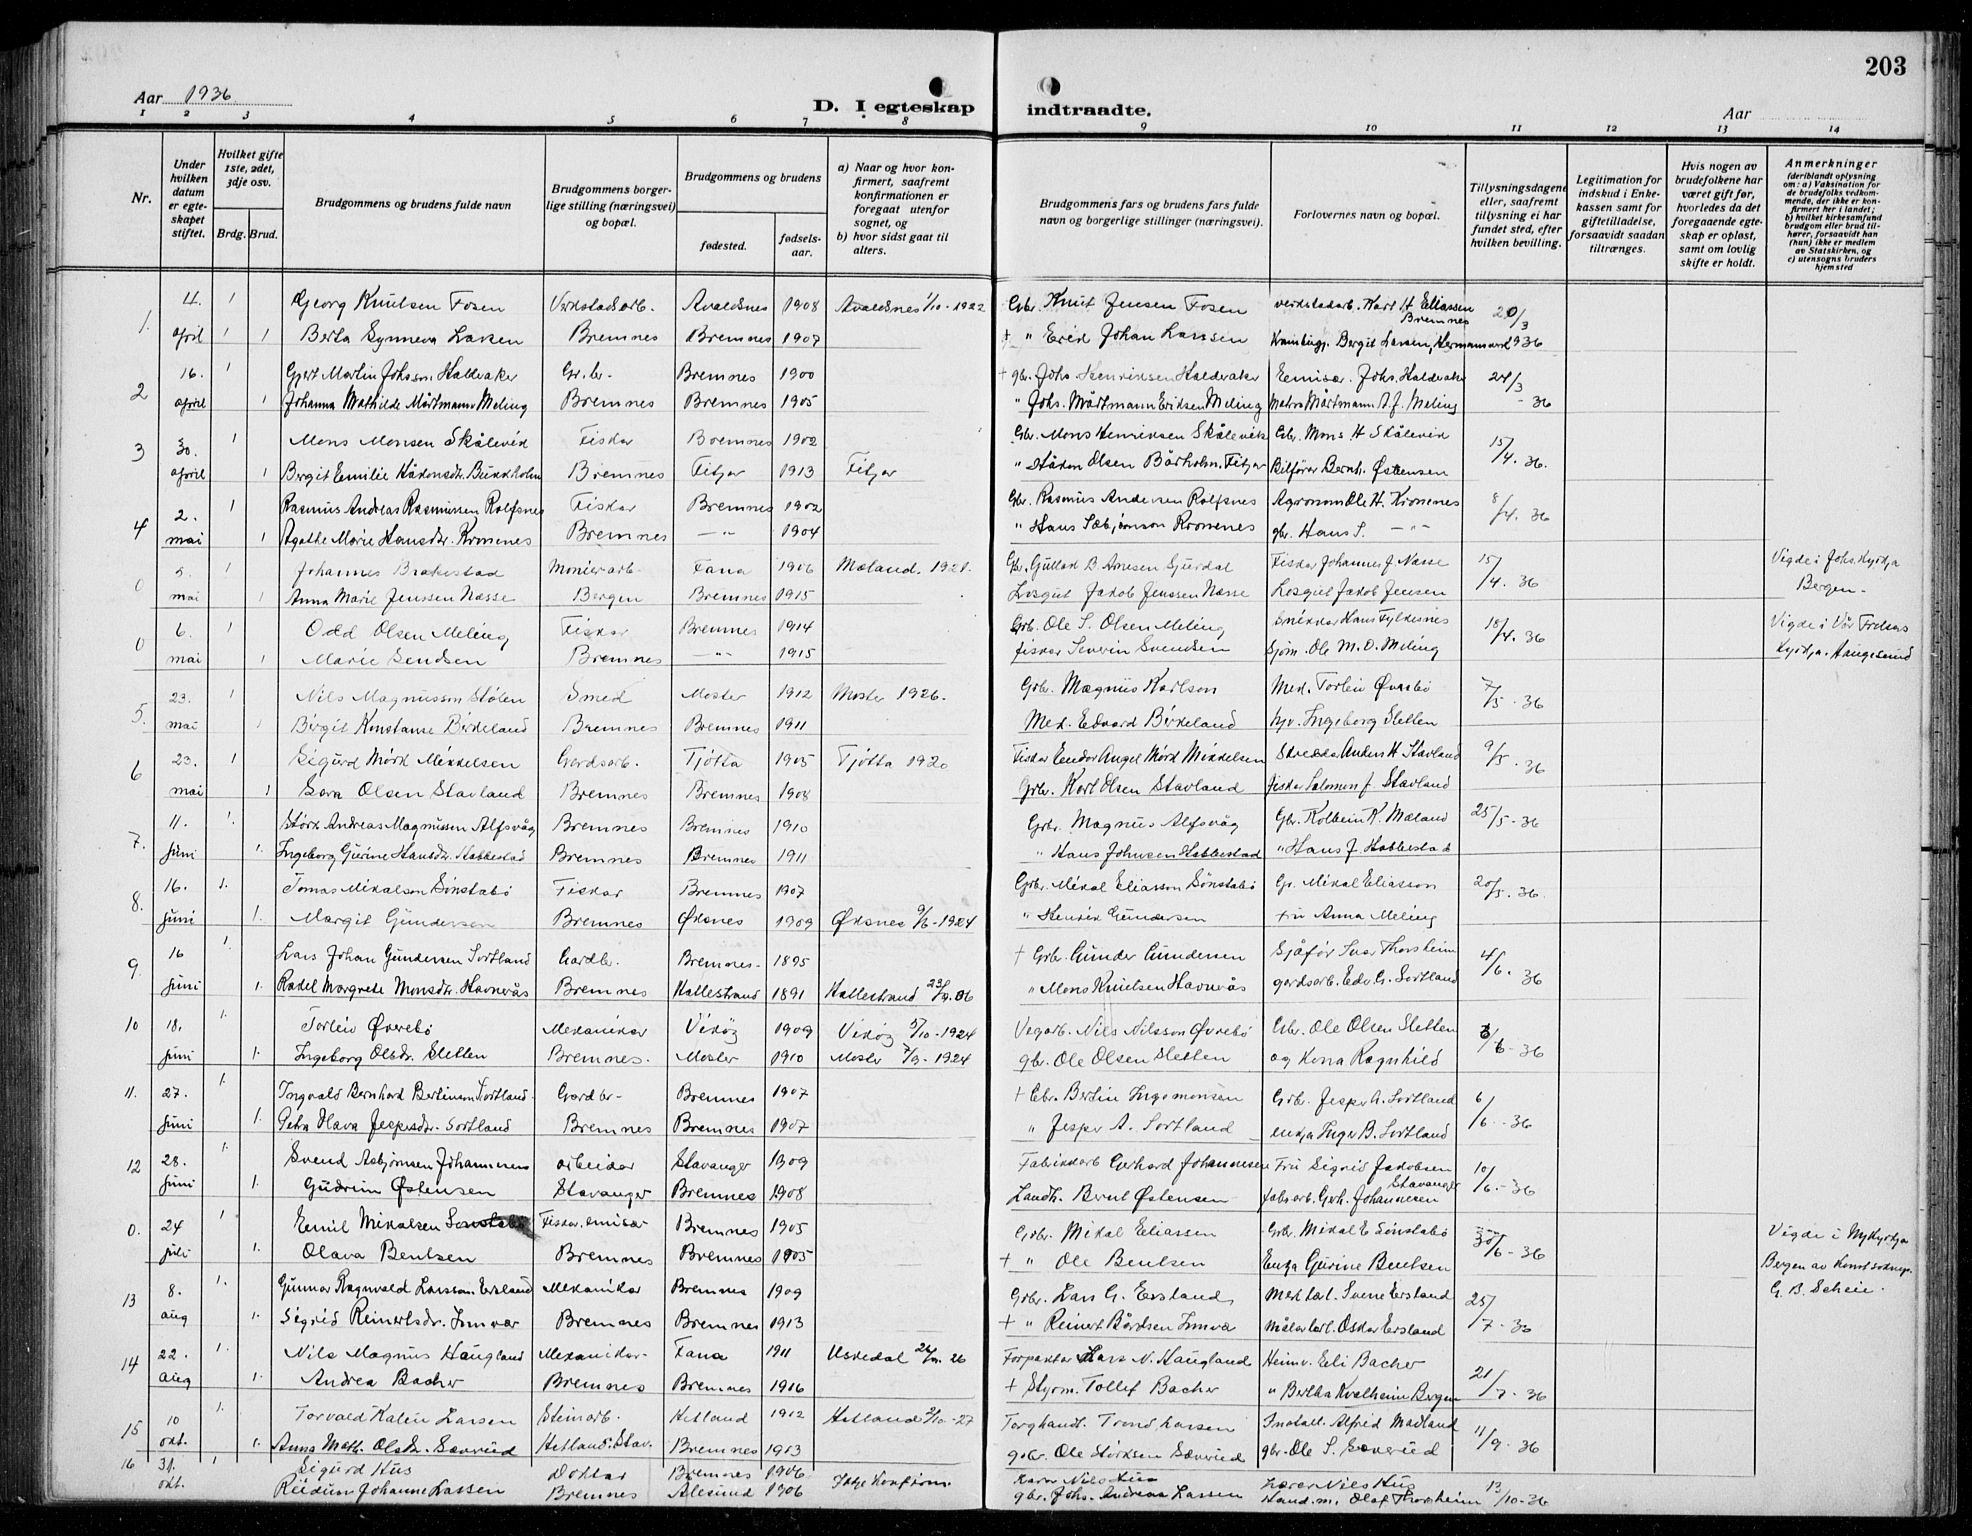 203
Aar 1936
D. I egteskap indtraadte.
Aar
1 2 3 4 5 6 7 8 9 10 11 12 13 14
Nr.
Under hvilken datum er egteskapet stiftet.
Hvilket gifte 1ste, 2det, 3dje osv.
Brdg. Brud.
Brudgommens og brudens fulde navn
Brudgommens borgerlige stilling (næringsvei) og bopæl.
Brudgommens og brudens
fødested.
fødselsaar.
a) Naar og hvor konfirmert, saafremt konfirmationen er foregaat utenfor sognet, og
b) hvor sidst gaat til alters.
Brudgommens fars og brudens fars fulde navn og borgerlige stillinger (næringsvei).
Forlovernes navn og bopæl.
Tillysningsdagene eller, saafremt tillysning ei har fundet sted, efter hvilken bevilling.
Legitimation for indskud i Enkekassen samt for giftetilladelse, forsaavidt saadan tiltrænges.
Hvis nogen av brudefolkene har været gift før, hvorledes da det foregaaende egteskap er opløst, samt om lovlig skifte er holdt.
Anmerkninger (deriblandt oplysning om: a) Vaksination for de brudefolks vedkommende, der ikke er konfirmert her i landet; b) hvilket kirkesamfund brudgom eller brud tilhører, forsaavidt han (hun) ikke er medlem av Statskirken, og c) utensogns bruders hjemsted
1. 4. 1 Georg Knutsen Fosen Verkstadsarb. Avaldsnes 1908 Avaldsnes 1/10-1922 Gbr. Knut Jensen Fosen verkstadarb. Karl H. Eliassen Bremnes 20/3
april 1 1 Berta Synneva Larsen Bremnes Bremnes 1907 + " Johan Larsen Bergit Larsen, 936
2 16. 1 Johs.sn. Haldraker Gr.br. Bremnes 1900 + gbr. Johs. Henriksen Halderaker Emisær. Johs. Halderaker 24/3
april 1 Johanna Mathilde Mårtmann Meling Bremnes Bremnes 1905 " Johs. Mårtmann Eriksen Meling Mårtmann J. Meling - 36
3 30. 1 Mons Monsen Skålevik Fiskar Bremnes 1902 Gbr. Mons Henriksen Skålevik Gbr. Mons H Skålevik 15/4. 36.
april 1 Bergit Emilie Håkonsdtr. Bremnes Fitjar 1913 Fitjar " Håkon Olsen Fitjar Bilfører Bernh. Østensen
4 2. 1 Rasmus Andreas Rasmussen Rolfsnes Fiskar Bremnes 1902 Gbr. Rasmus Andersen Rolfsnes Agronom Ole H. Kronenes 8/4. 36
mai 1 Agathe Marie Hansdtr. Kronenes Bremnes — " — 1904 " Hans Sæbjørnson Kronenes gbr. Hans S. — " —
0 5. 1 Johannes Brakestad Fana 1906 Mæland. 1921. Gbr. Fiskar Johannes J. Næsse 15/4. 36 Vigde i Johs.kyrkja
mai 1 Anna Marie Jenssen Næsse Bergen Bremnes 1915 Losgut Jakob Jenssen Næsse Losgut Jakob Jensen Bergen -
0 6. 1 Odd Olsen Meling Fiskar Bremnes 1914 Gbr. Ole S. Olsen Meling Snikkar Hans Fylkesnes 18/4. 36 Vigde i Vår Frelsers
mai 1 Marie Sendsen Bremnes — " — 1915 fiskar Severin Svendsen Sjøm. Ole M. O. Meling Kyrkja. Haugesund
5. 23. 1 Nils Magnusson Stølen Smed Moster 1912 Moster 1926. Grbr. Magnus Karlson Mek. Torleiv Øvrebø 7/5. 36
mai 1 Birgit Konstanse Birkeland Bremnes Bremnes 1911 Mek. Edvard Birkeland Ingeborg Sletten
6 23. 1 Sigurd Mørk Mikkelsen Gardsarb. Tjøtta 1905 Tjøtta 1920 Fiskar Endor Angel Mørk Mikkelsen Anders H. Stavland 9/5. 36
mai 1 Sara Olsen Stavland Bremnes Bremnes 1908 Grbr. Karl Olsen Stavland fiskar Salomon J. Stavland
7. 11. 1. Størk Andreas Magnussen Alfsvåg Bremnes Bremnes 1910 Grbr. Magnus Alfsvåg Gbr. Kolbein K. Mæland 25/5-36
juni 1. Ingeborg Gurine Hansdtr. Habbestad Bremnes Bremnes 1911 " Hans Johnsen Habbestad " Hans J. Habbestad
8. 16. 1. Tomas Mikalsen Sønstabø Fiskar Bremnes 1907 Grbr. Mikal Eliasson Sønstabø Gr. Mikal Eliasson 20/5. 36
juni 1. Margit Gundersen Bremnes Øksnes 1909 Øksnes -1924 " Henrik Gundersen Anna Meling
9. 16 1. Lars Johan Gundersen Sortland Gardbr. Bremnes. 1895 + Grbr. Gunder Gundersen Sjåfør Thorsheim 4/6. 36
juni 1. Rakel Margrete Monsdtr. Havnerås Bremnes Hallestrand 1891 Hallestrand 06 " Mons Knutsen Havnerås gardsarb. Edv. G. Sortland
10 18. 1. Torleiv Øvrebø Mekanikar Vikøy 1909 Vikøy 5/10-1924 Vegarb. Nils Nilsson Øvrebø Gbr. Ole Olsen Sletten 6/6-36
juni 1. Ingeborg Olsdtr. Sletten Bremnes. Moster 1910 Moster 7/9-1924 gbr. Ole Olsen Sletten og Kona Ragnhild
11. 27. 1. Ingvald Bernhard Bertinsen Sortland. Gardbr- Bremnes 1907 + Gbr. Bertin Ingemonsen Grbr. Jesper A. Sortland 6/6 -36
juni 1. Petra Olava Jespersdtr. Sortland Bremnes Bremnes 1907 " Jesper A. Sortland enkja Inger B. Sortland
12 28. 1. Svend Asbjørnsen Johannesen arbeidar Stavanger 1909 Fabrikkarb Gerhard Johannesen Fru Sigrid Jakobsen Stavanger 10/6.-36
juni 1. Gudrun Østensen Stavanger Bremnes 1908 Landh. Bernt Østensen fabr.arb. Gerh. Johannesen
0. 24 1 Emil Mikalsen Sønstabø Fiskar, emisær Bremnes 1905 Grbr. Mikal Eliassen Grbr. Mikal E Sønstabø 30/6-36 Vigde i Nykyrkja
juli 1. Olava Bentsen Bremnes Bremnes 1905 + " Ole Bentsen Enkja Gurine Bentsen Bergen av
13 8. 1. Gunnar Ragnvald Larsson Eersland Mekanikar Bremnes 1909 Grbr. Lars G. Eersland Svene Eersland 25/7-36 G. B. Scheie.
aug 1. Sigrid Reinertsdtr. Innvær Bremnes Bremnes 1913 + " Reinert Bårdsen Innvær Oskar Eersland
14 22. 1. Nils Magnus Haugland Mekanikar- Fana 1911 Uskedal 26 Forpaktar Lars N. Haugland Heimv. Eli Bacher 21/7-36
aug 1. Andrea Bacher Bremnes Bremnes 1916 + Styrm. Tollef Bacher " Bertha Kvalheim Bergen
15 10 1. Torvald Kalen Larsen Steinarb. Hetland 1912 Hetland 2/10-27 Torghandl. Trond Larsen Install. Alfred Madland 11/9-36
okt. 1. Anna Math. Olsdtr. Særvoll Hetland. Stav. Bremnes 1913 gbr. Ole Størksen gbr. Ole S.
16 31. 1 Sigurd Hus Doktar Bremnes 1906 Ikkje Konfirm. Nils Hus Lærar Nils Hus 13/10-36
okt. Reidun Johanne Lassen Bremnes Ålesund 1906 gbr. Johs. Andreas Lassen Hand.m. Olaf Thorsheim